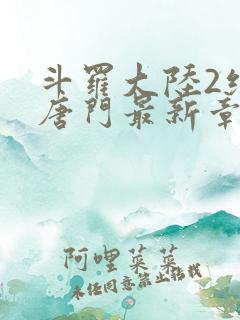 斗羅大陸2
唐門最新章
阿哩菜菜
未经同意禁止搭载